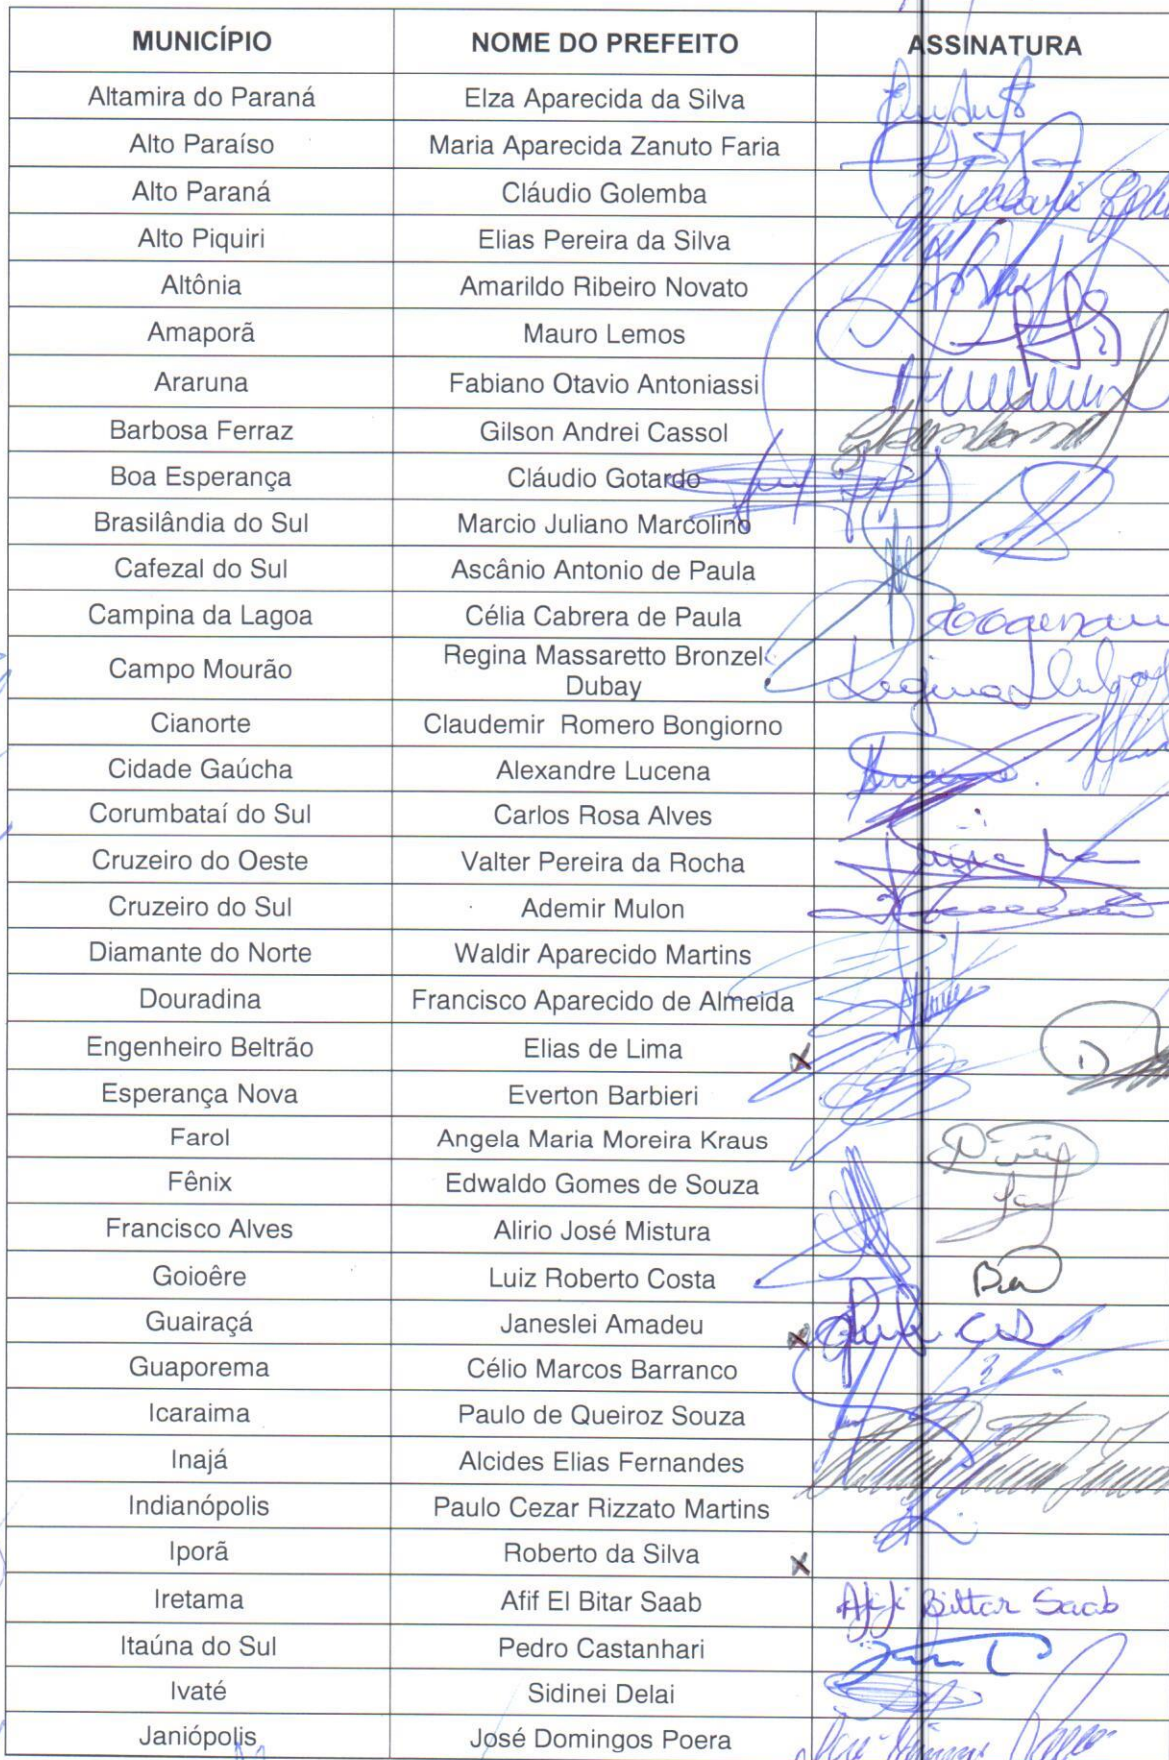 MUNICÍPIO NOME DO PREFEITO ASSINATURA
Altamira do Paraná Elza Aparecida da Silva
Alto Paraíso Maria Aparecida Zanuto Faria
Alto Paraná Cláudio Golemba
Alto Piquiri Elias Pereira da Silva
Altônia Amarildo Ribeiro Novato
Amaporã Mauro Lemos
Araruna Fabiano Otavio Antoniassi
Barbosa Ferraz Gilson Andrei Cassol
Boa Esperança Cláudio Gotardo
Brasilândia do Sul Marcio Juliano Marcolino
Cafezal do Sul Ascânio Antonio de Paula
Campina da Lagoa Célia Cabrera de Paula
Campo Mourão Regina Massaretto Bronzel
Dubay Regina Dubay
Cianorte Claudemir Romero Bongiorno
Cidade Gaúcha Alexandre Lucena
Corumbataí do Sul Carlos Rosa Alves
Cruzeiro do Oeste Valter Pereira da Rocha
Cruzeiro do Sul Ademir Mulon
Diamante do Norte Waldir Aparecido Martins
Douradina Francisco Aparecido de Almeida
Engenheiro Beltrão Elias de Lima x
Esperança Nova Everton Barbieri
Farol Angela Maria Moreira Kraus
Fênix Edwaldo Gomes de Souza
Francisco Alves Alirio José Mistura
Goioêre Luiz Roberto Costa
Guairaçá Janeslei Amadeu x
Guaporema Célio Marcos Barranco
Icaraima Paulo de Queiroz Souza
Inajá Alcides Elias Fernandes
Indianópolis Paulo Cezar Rizzato Martins
Iporã Roberto da Silva x
Iretama Afif El Bitar Saab Afif Bittar Saab
Itaúna do Sul Pedro Castanhari
Ivaté Sidinei Delai
Janiópolis José Domingos Poera